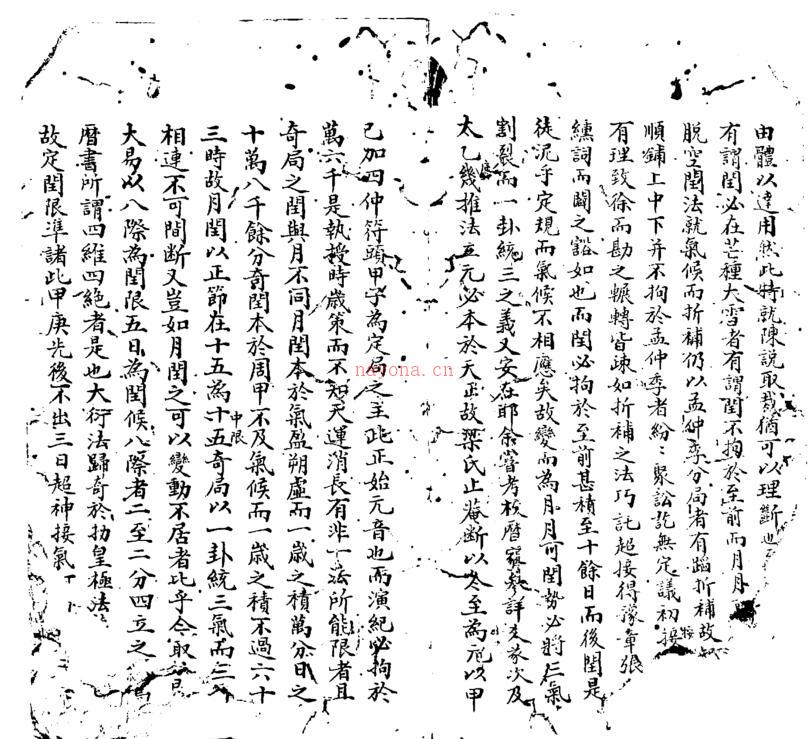 由體以達用然此特就陳說取裁猶可以理斷也
有謂閏必在芒種大雪者有謂閏不拘於至前而月月
脫空閏法就氣候而折補仍以孟仲季分局者有蹈折補故
順鋪上中下并不拘於孟仲季者紛〻聚訟訖無定議初接
有理致徐而勘之輾轉皆疎如折補之法巧託超接得豫章張
纁詞而闢之豁如也而閏必拘於至前甚積至十餘日而後閏是
徒泥乎定規而氣候不相應矣故變而為月月可閏勢必將三氣
割裂而一卦統三之義又安在耶余嘗考校曆書參詳支家次及
太乙幾推法立元必本於天正故梁氏止菴斷以冬至為元以甲
己加四仲符頭甲子為定局之主此正始元音也而演紀必拘於
萬六千是執授時歲策而不知天運消長有非一法所能限者且
奇局之閏與月不同月閏本於氣盈朔虛而一歲之積萬分日之
十萬八千餘分奇閏本於周甲不及氣候而一歲之積不過六十
三時故月閏以正節在十五為中限十五奇局以一卦統三氣而三
相連不可間斷又豈如月閏之可以變動不居者比乎今取
大易以八際為閏限五日為閏候八際者二至二分四立之
曆書所謂四維四絕者是也大衍法歸奇於扐皇極法
故定閏限準諸此甲庚先後不出三日超神接氣
nayona.cn